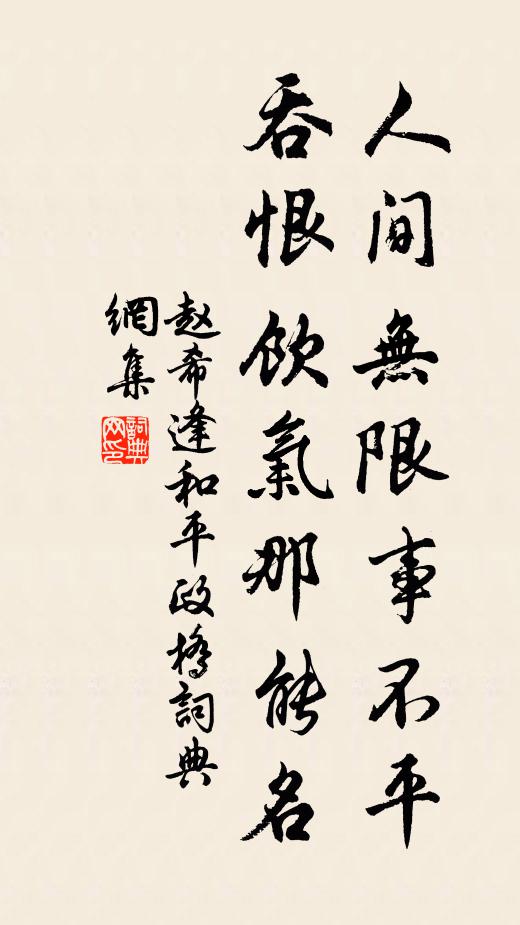 人間無限事不平
吞恨飲氣那能名
赵希逢和平政橋詞典
網集
詞典
网印